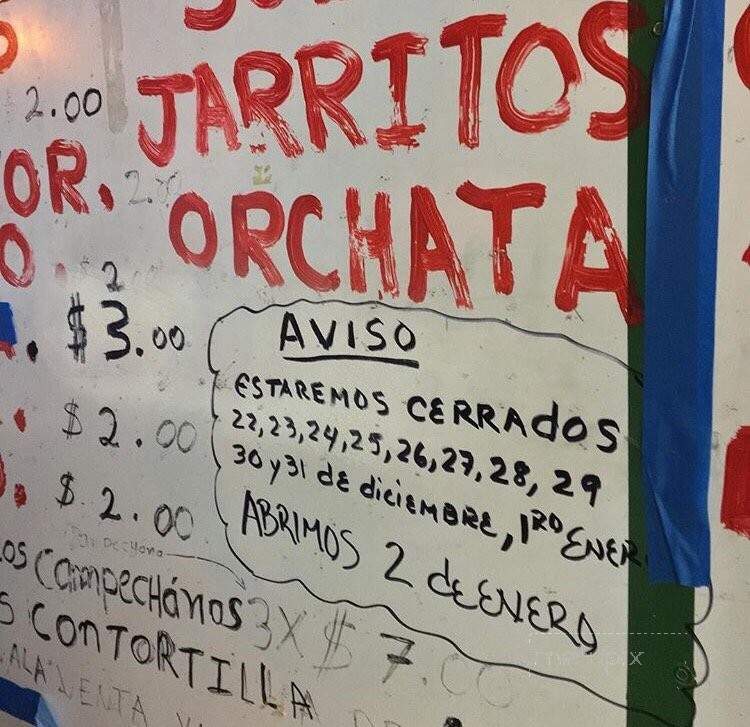 JARRITOS
2.00
OR.
ORCHATA
O.
2
$3.00
AVISO
ESTAREMOS CERRAdOS
22,23,24,25,26,27,28,29
30 y 31 dE diciEMBRE, 1RO ENER
ABRIMOS 2 dE ENERO
$ 2.00
$ 2.00
OS CAMPECHÁNOS 3X $ 7.00
S CONTORTILLA
ALA VENTA